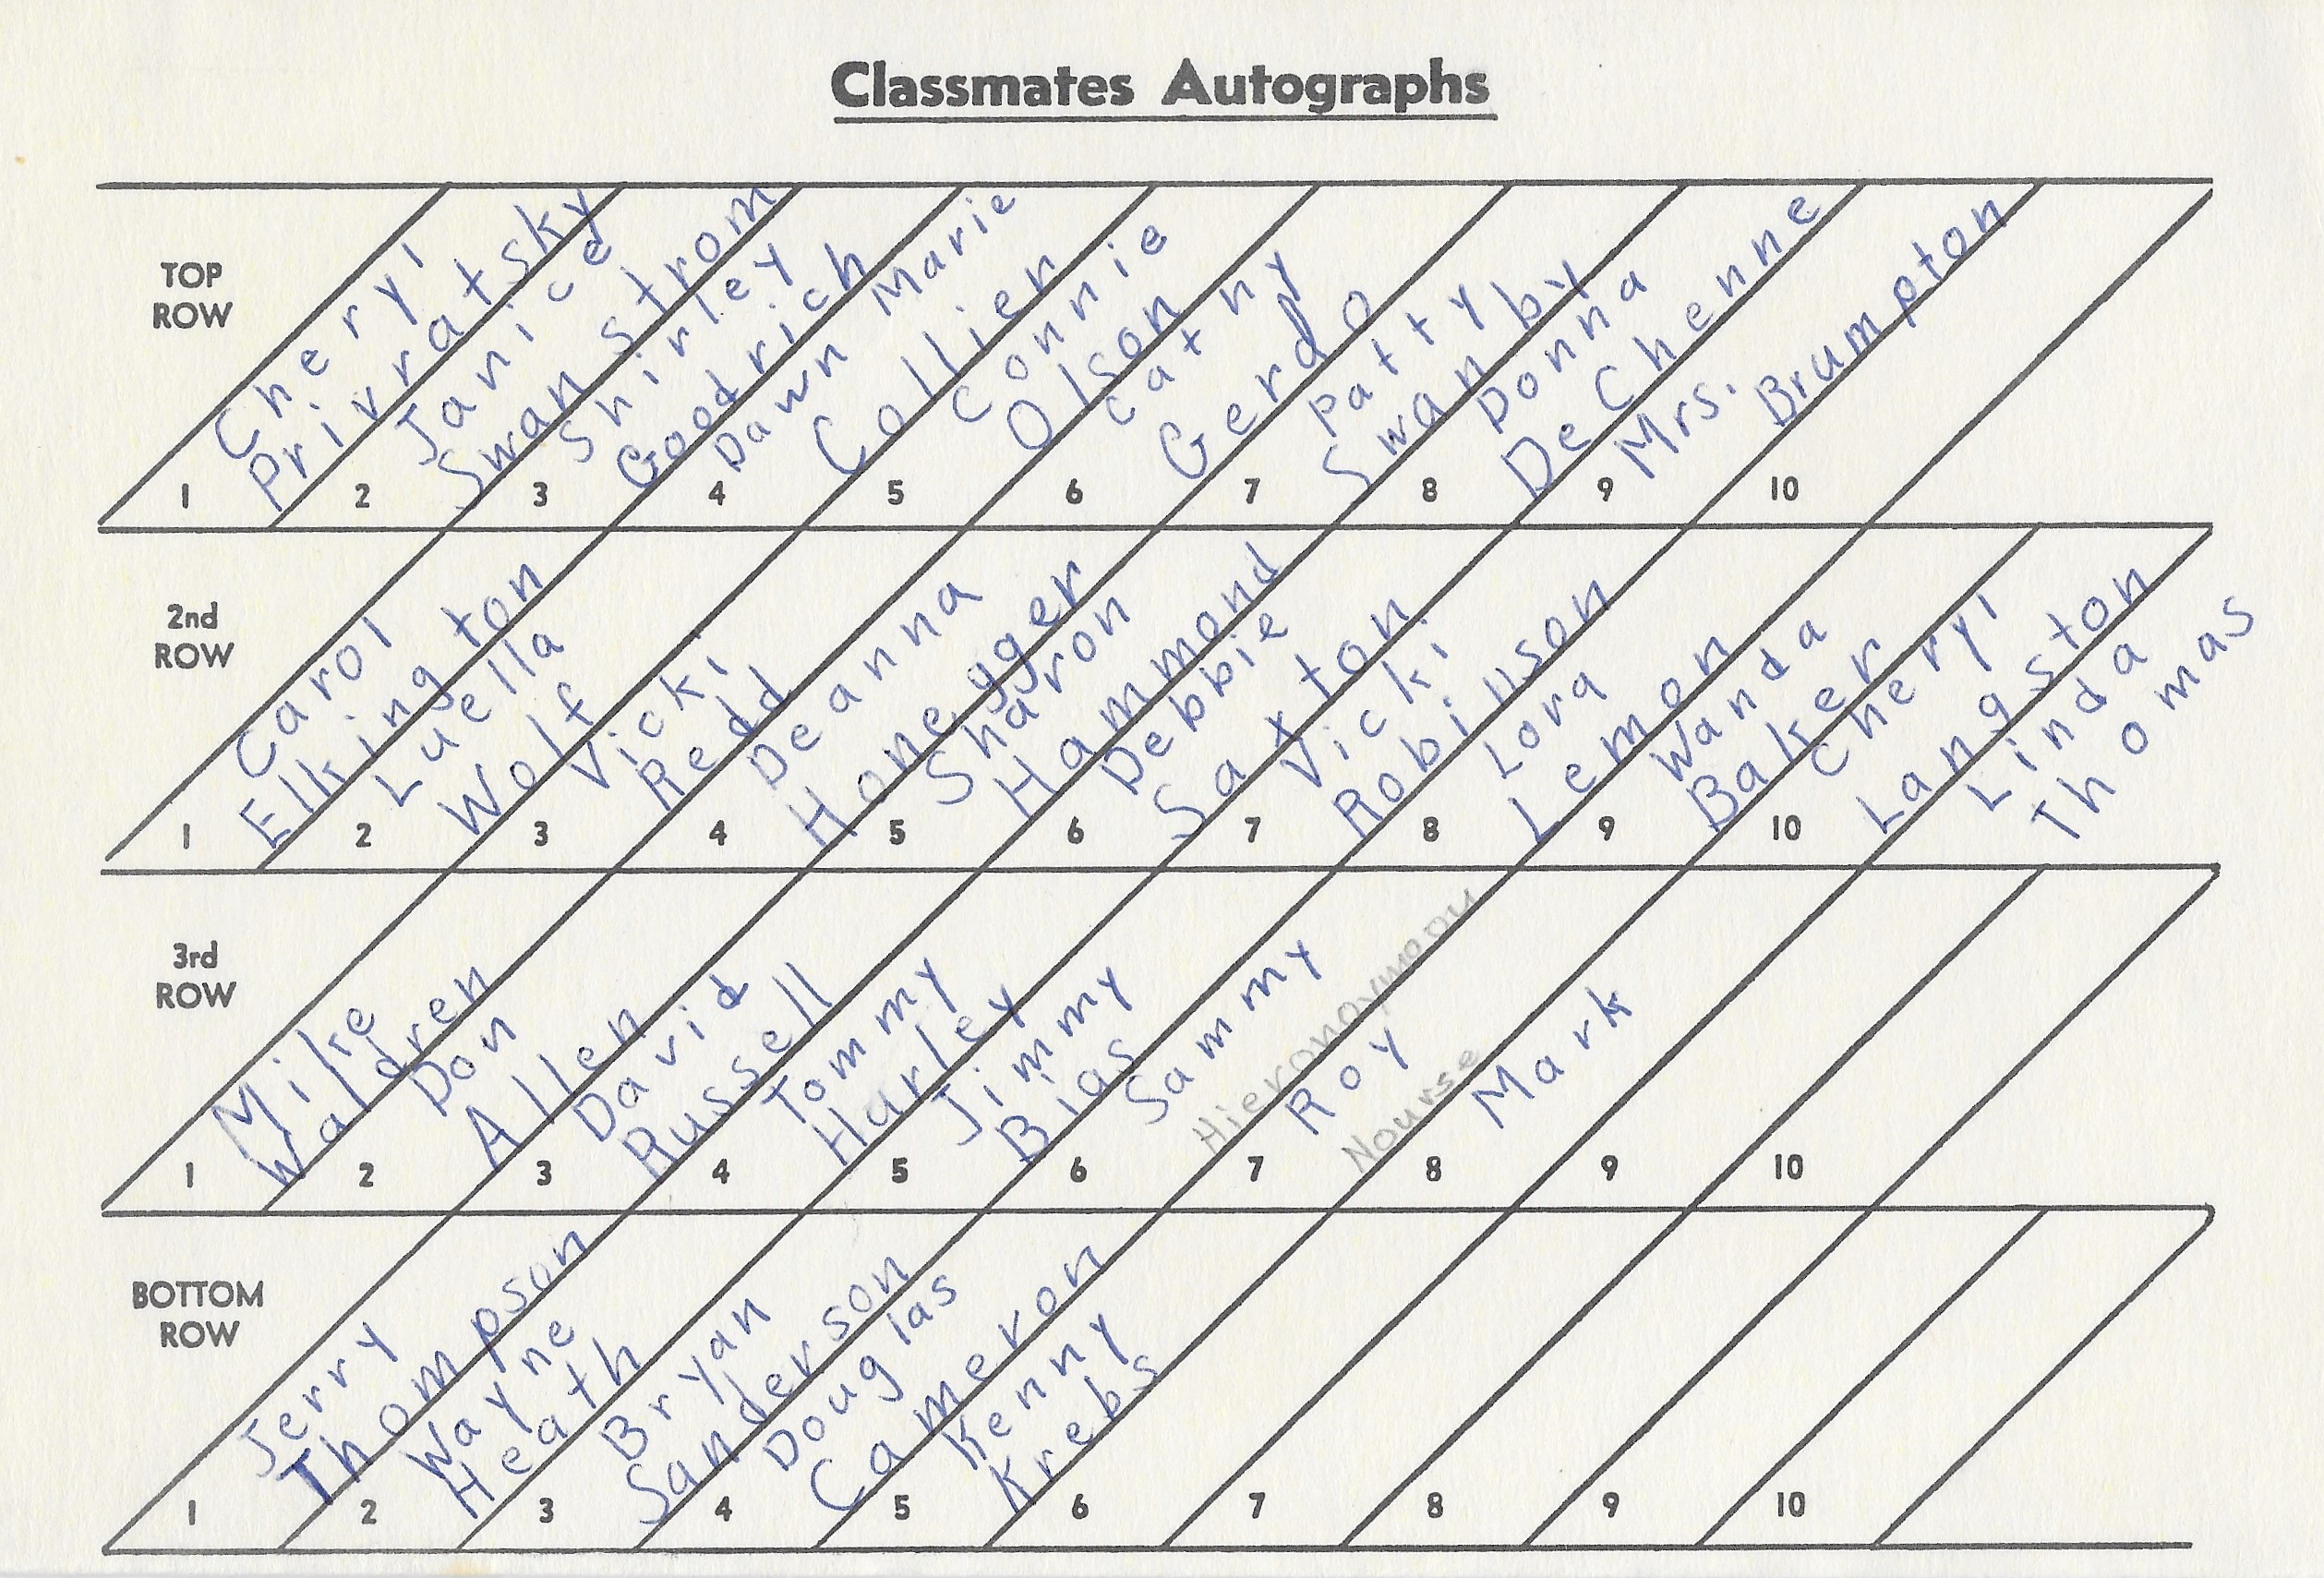 Classmates Autographs
TOP
ROW
1
Cheryl
Privratsky
2
Janice
Swanstrom
3
Shirley
Goodrich
4
Dawn Marie
Collier
5
Connie
Olson
6
Cathy
Gerdo
7
Patty
Swanby
8
Donna
DeChenne
9
Mrs.
Brumpton
10
2nd
ROW
1
Carol
Elkington
2
Luella
Wolf
3
Vicki
Redd
4
Deanna
Honegger
5
Sharon
Hammond
6
Debbie
Saxton
7
Vicki
Robinson
8
Lora
Lemon
9
Wanda
Baker
10
Cheryl
Langston
Linda
Thomas
3rd
ROW
1
Mike
Waldren
2
Don
Allen
3
David
Russell
4
Tommy
Hurley
5
Jimmy
Bias
6
Sammy
7
Roy
Nourse
8
Mark
9
10
BOTTOM
ROW
1
Jerry
Thompson
2
Wayne
Heath
3
Bryan
Sanderson
4
Douglas
Cameron
5
Kenny
Krebs
6
7
8
9
10